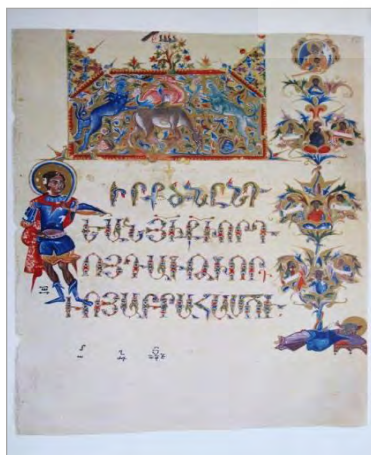 ԻՐՔԾՆԸՆԴ
ԵԱՆՅԻՔԻՈՐԴՒ
ՈՅԴԱՒԹԻՈՐԴ
ՒՈՅԱԲՐԱՀԱՄՈՒ